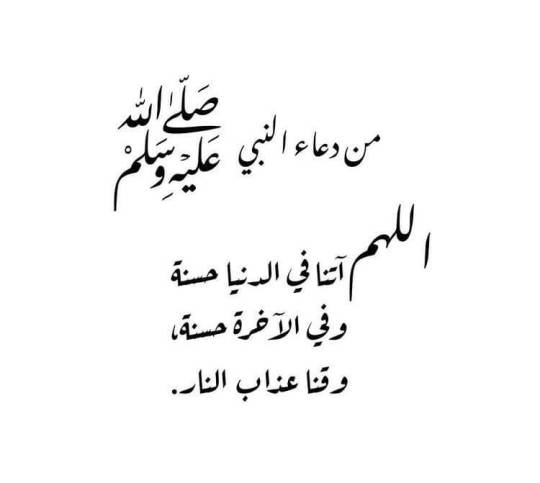 من دعاء النبي صَلَّىٰ الله عَلَيْهِ وَسَلَمْ
اللهم آتنا في الدنيا حسنة
وفي الآخرة حسنة،
وقنا عذاب النار.